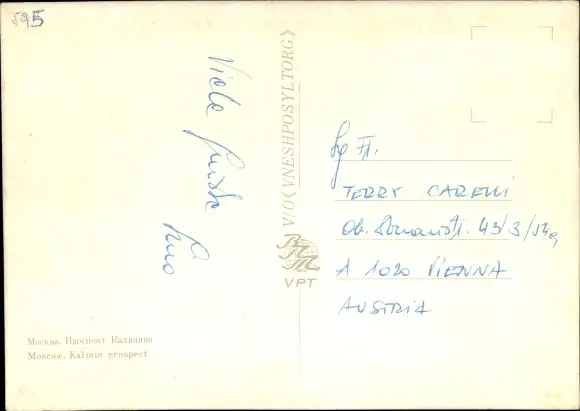 595
Viele
Grüße
V/O ⟨VNESHPOSYLTORG⟩
VPT
Fr.
TERRY CARELLI
Ob. Donaustr. 43/3/
A 1020 VIENNA
AUSTRIA
Москва. Проспект Калинина
Moscow. Kalinin prospect